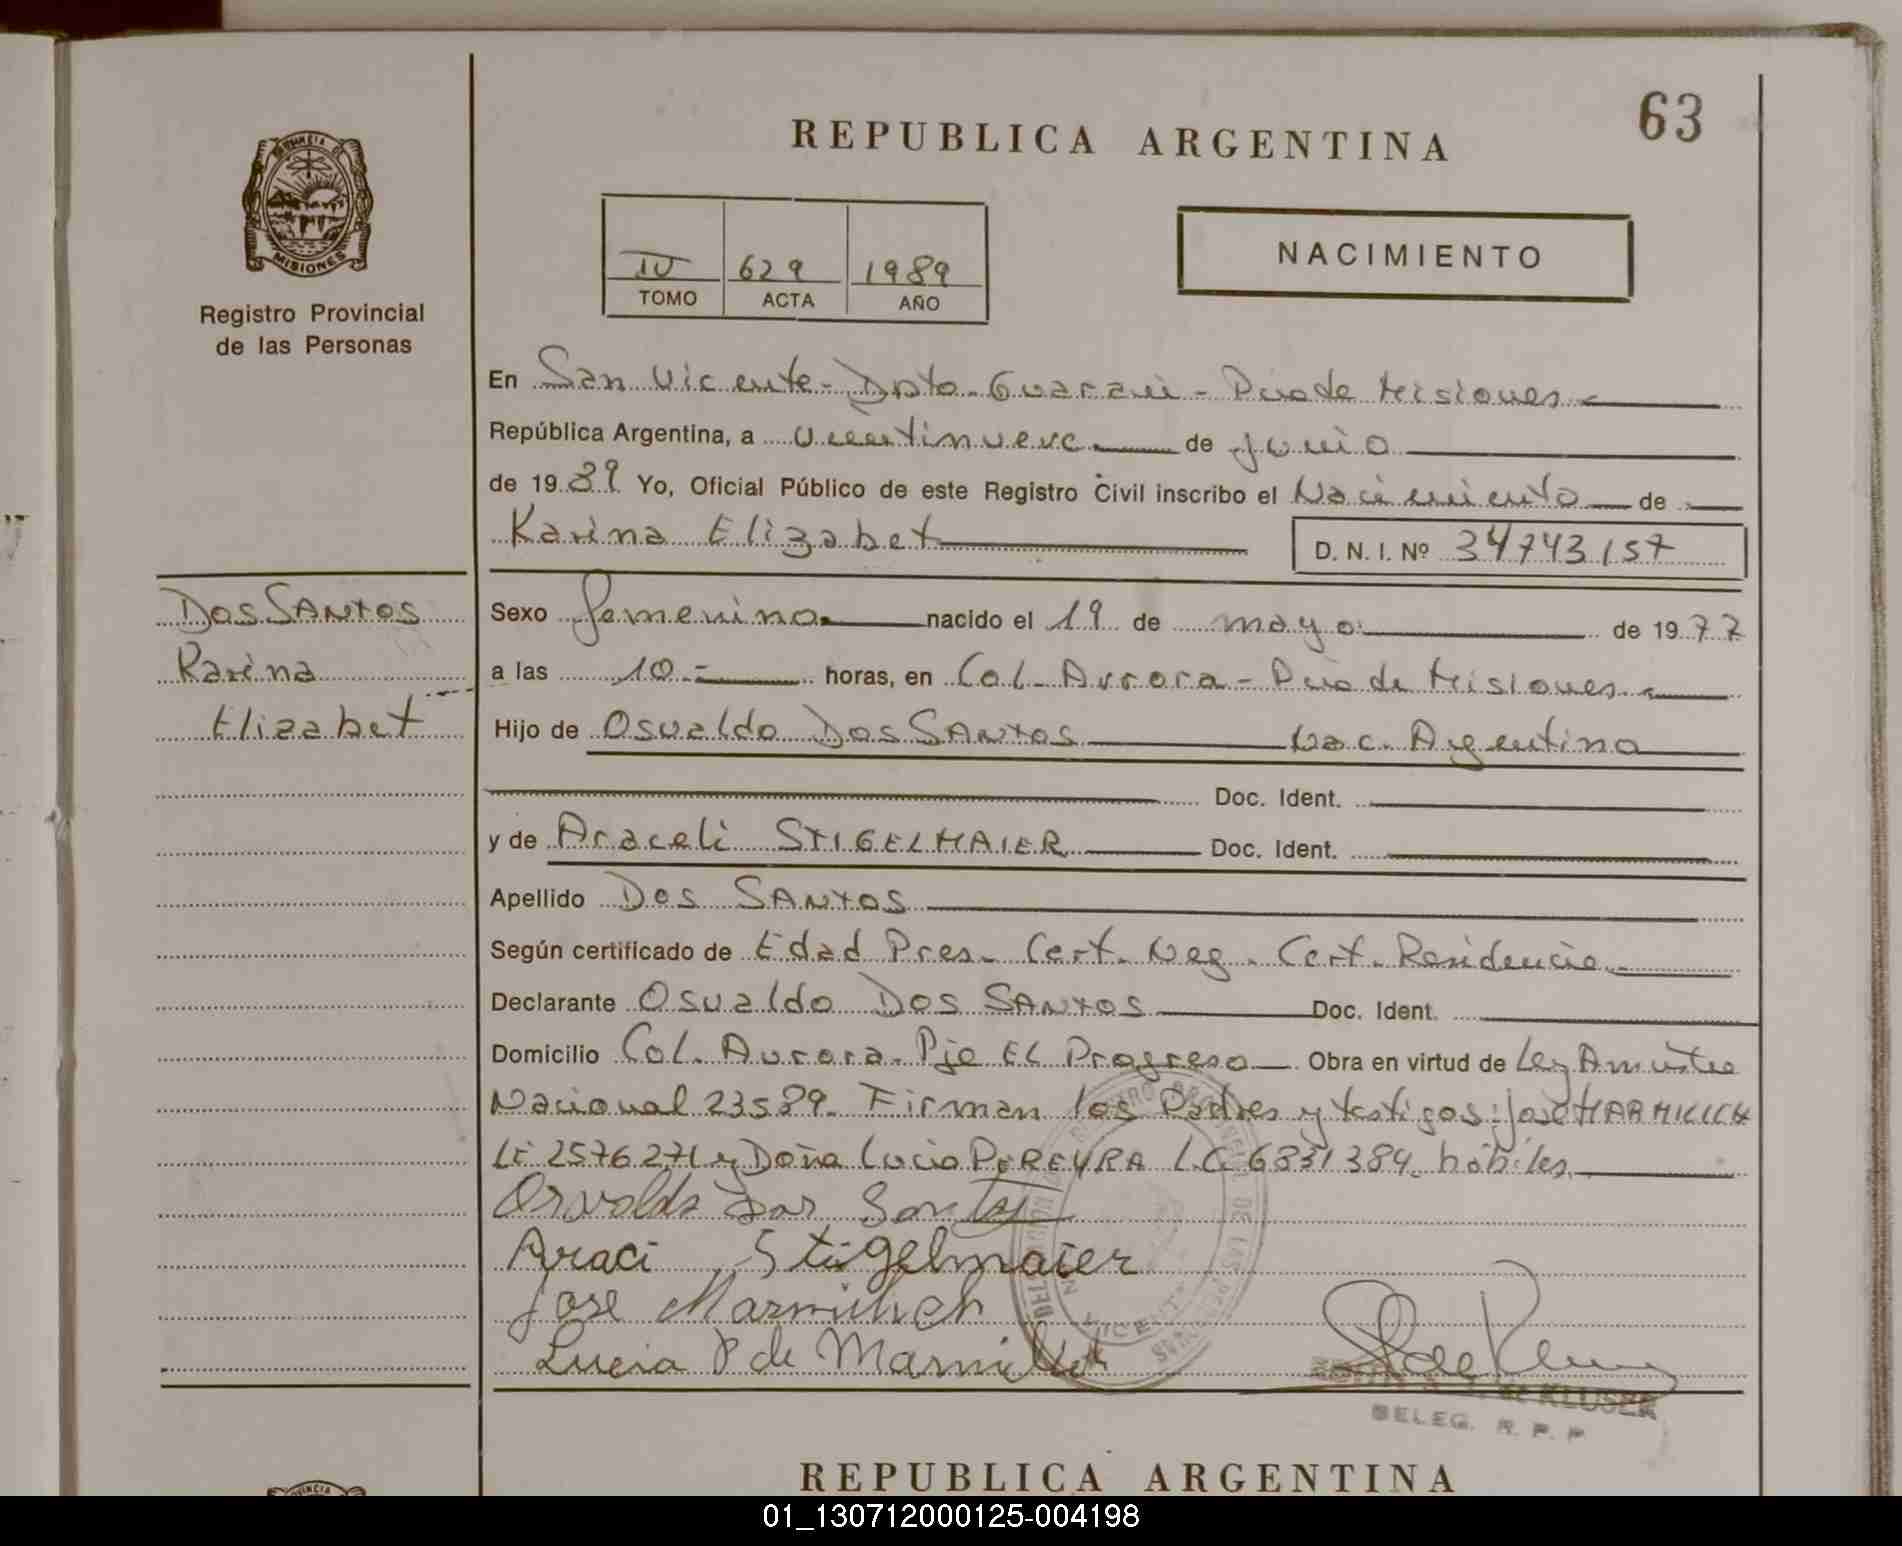 63
REPUBLICA ARGENTINA
PROVINCIA DE
MISIONES
Registro Provincial
de las Personas
IV 629 1989
TOMO ACTA AÑO
NACIMIENTO
En San Vicente - Dpto. Guaraní - Pcia de Misiones
República Argentina, a veintinueve de junio
de 1989 Yo, Oficial Público de este Registro Civil inscribo el Nacimiento de
Karina Elizabet D. N. I. Nº 34743157
Dos SANTOS
Karina
Elizabet
Sexo femenino nacido el 19 de mayo de 1977
a las 10 horas, en Col. Aurora - Pcia de Misiones
Hijo de Osvaldo Dos SANTOS Nac. Argentina
Doc. Ident.
y de Araceli STIGELMAIER Doc. Ident.
Apellido Dos SANTOS
Según certificado de Edad Pres. Cert. Neg. Cert. Residencia
Declarante Osvaldo Dos SANTOS Doc. Ident.
Domicilio Col. Aurora. Pje EL Progreso Obra en virtud de Ley
Nacional 23589. Firman los Padres y testigos: José
LE 2576271 y Doña Lucia PEREYRA L.C. 6831384. hábiles.
Osvaldo Dos Santos
Araci Stigelmaier
Jose
Lucia P de
de KLUSER
DELEG. R. P. P.
REPUBLICA ARGENTINA
01_130712000125-004198